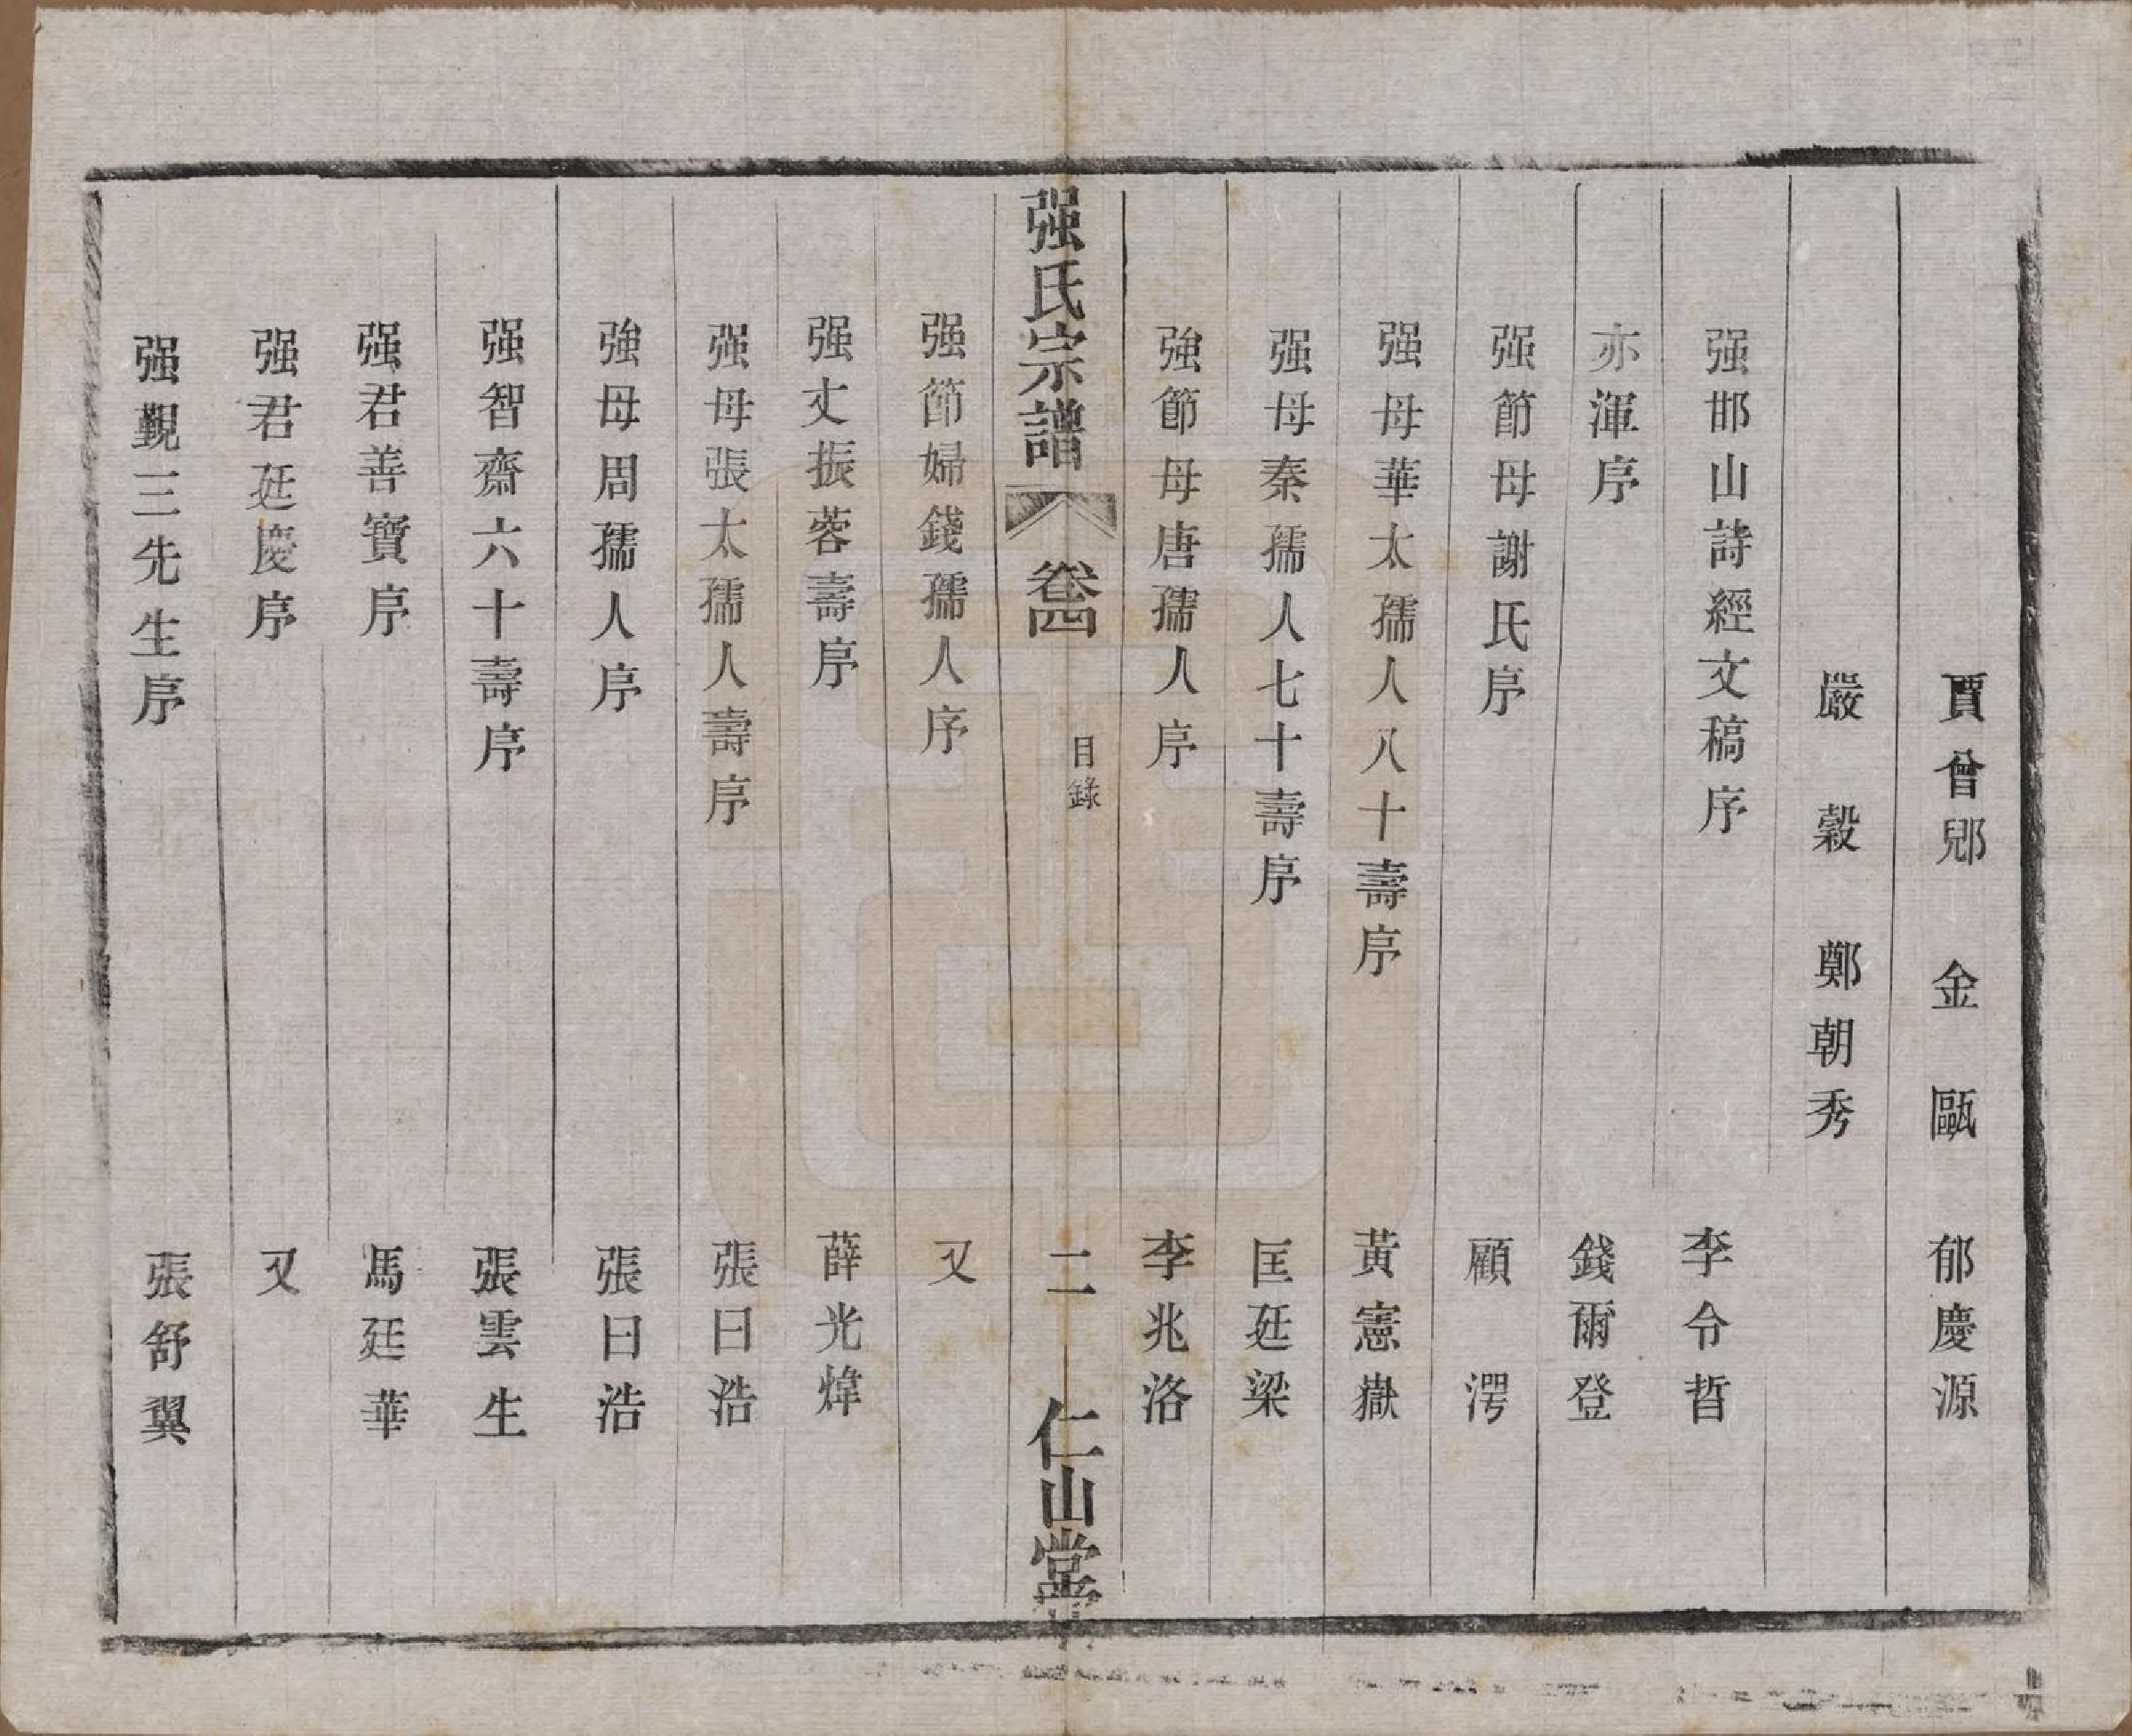 賈曾郧　金　甌　郁慶源
嚴　穀　鄭朝秀
强邯山詩經文稿序　李令晳
亦渾序　錢爾登
强節母謝氏序　顧　㴶
强母華太孺人八十壽序　黃憲嶽
强母秦孺人七十壽序　匡廷梁
強節母唐孺人序　李兆洛
强氏宗譜　卷四　目錄　二　仁山堂
强節婦錢孺人序　又
强丈振蓉壽序　薛光煒
强母張太孺人壽序　張日浩
強母周孺人序　張日浩
强智齋六十壽序　張雲生
强君善寶序　馬廷華
强君廷慶序　又
强觐三先生序　張舒翼